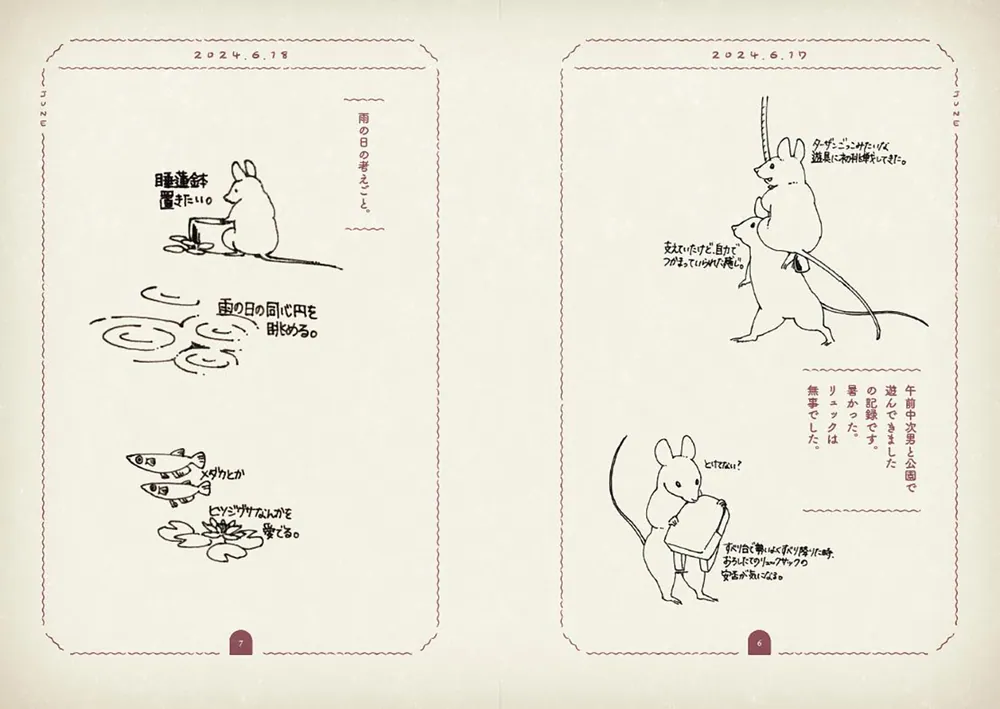 2024.6.17
JUNE
ターザンごっこみたいな
遊具に初挑戦してきた。
支えていたけど、自力で
つかまっていられた感じ。
午前中次男と公園で
遊んできました
の記録です。
暑かった。
リュックは
無事でした。
とけてない?
すべり台で勢いよくすべり降りた時、
おろしたてのリュックサックの
安否が気になる。
6
2024.6.18
JUNE
雨の日の考えごと。
睡蓮鉢
置きたい。
雨の日の同心円を
眺める。
メダカとか
ヒツジグサなんかを
愛でる。
7